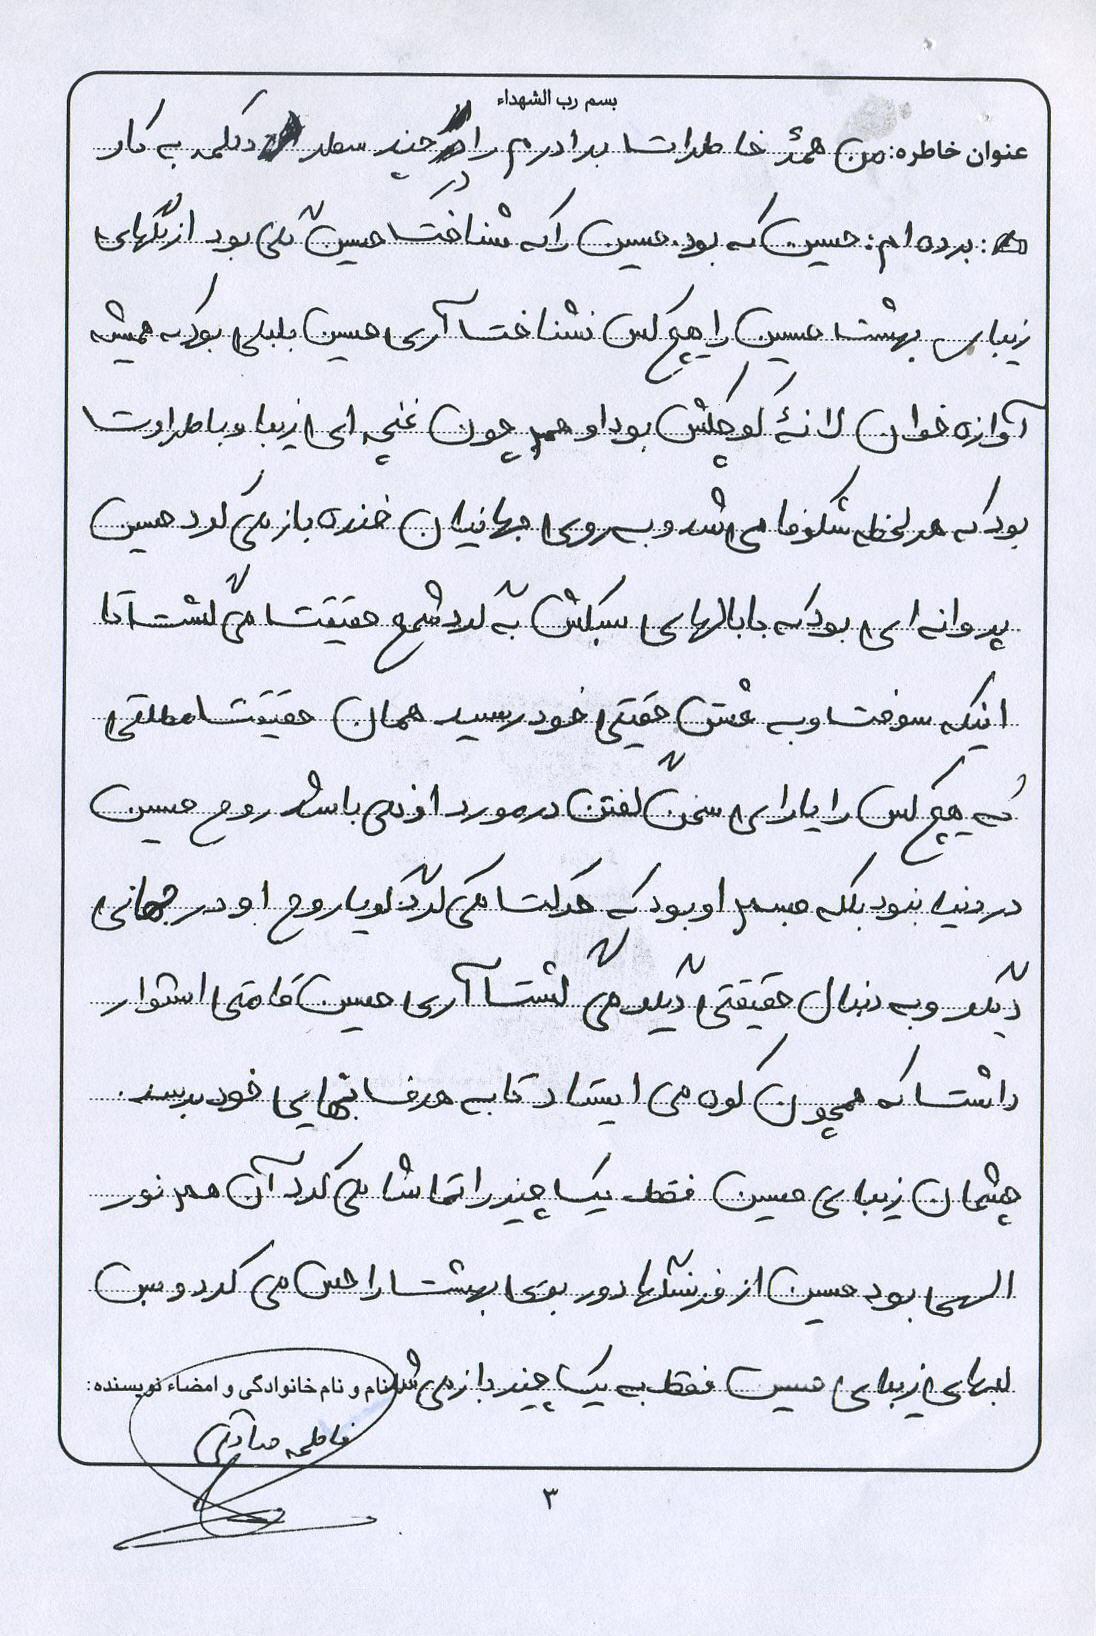 بسم رب الشهداء
عنوان خاطره: من همهٔ خاطرات برادرم را در چند سطر و کلمه به کار
برده ام: حسین که بود. حسین را که شناخت حسین گلی بود از گلهای
زیبای بهشت حسین را هیچ کس نشناخت آری حسین بلبلی بود که همیشه
آوازه خوان لانهٔ کوچکش بود او همچون غنچه ای زیبا و با طراوت
بود که هر لحظه شکوفا می شد و به روی جهانیان خنده باز می کرد حسین
پروانه ای بود که با بالهای سبکش به گرد شمع حقیقت می گشت تا
اینکه سوخت و به عشق حقیقی خود رسید همان حقیقت مطلقی
که هیچ کس را یارای سخن گفتن در مورد او نمی باشد روح حسین
در دنیا نبود بلکه جسم او بود که حرکت می کرد گویا روح او در جهانی
دیگر و به دنبال حقیقتی دیگر می گشت آری حسین قامتی استوار
داشت که همچون کوه می ایستاد تا به هدف نهایی خود برسد.
چشمان زیبای حسین فقط یک چیز را تماشا می کرد آن هم نور
الهی بود حسین از فرسنگها دور بوی بهشت را حس می کرد و بس
لبهای زیبای حسین فقط به یک چیز باز می شد
نام و نام خانوادگی و امضاء نویسنده:
فاطمه صادقی
۳